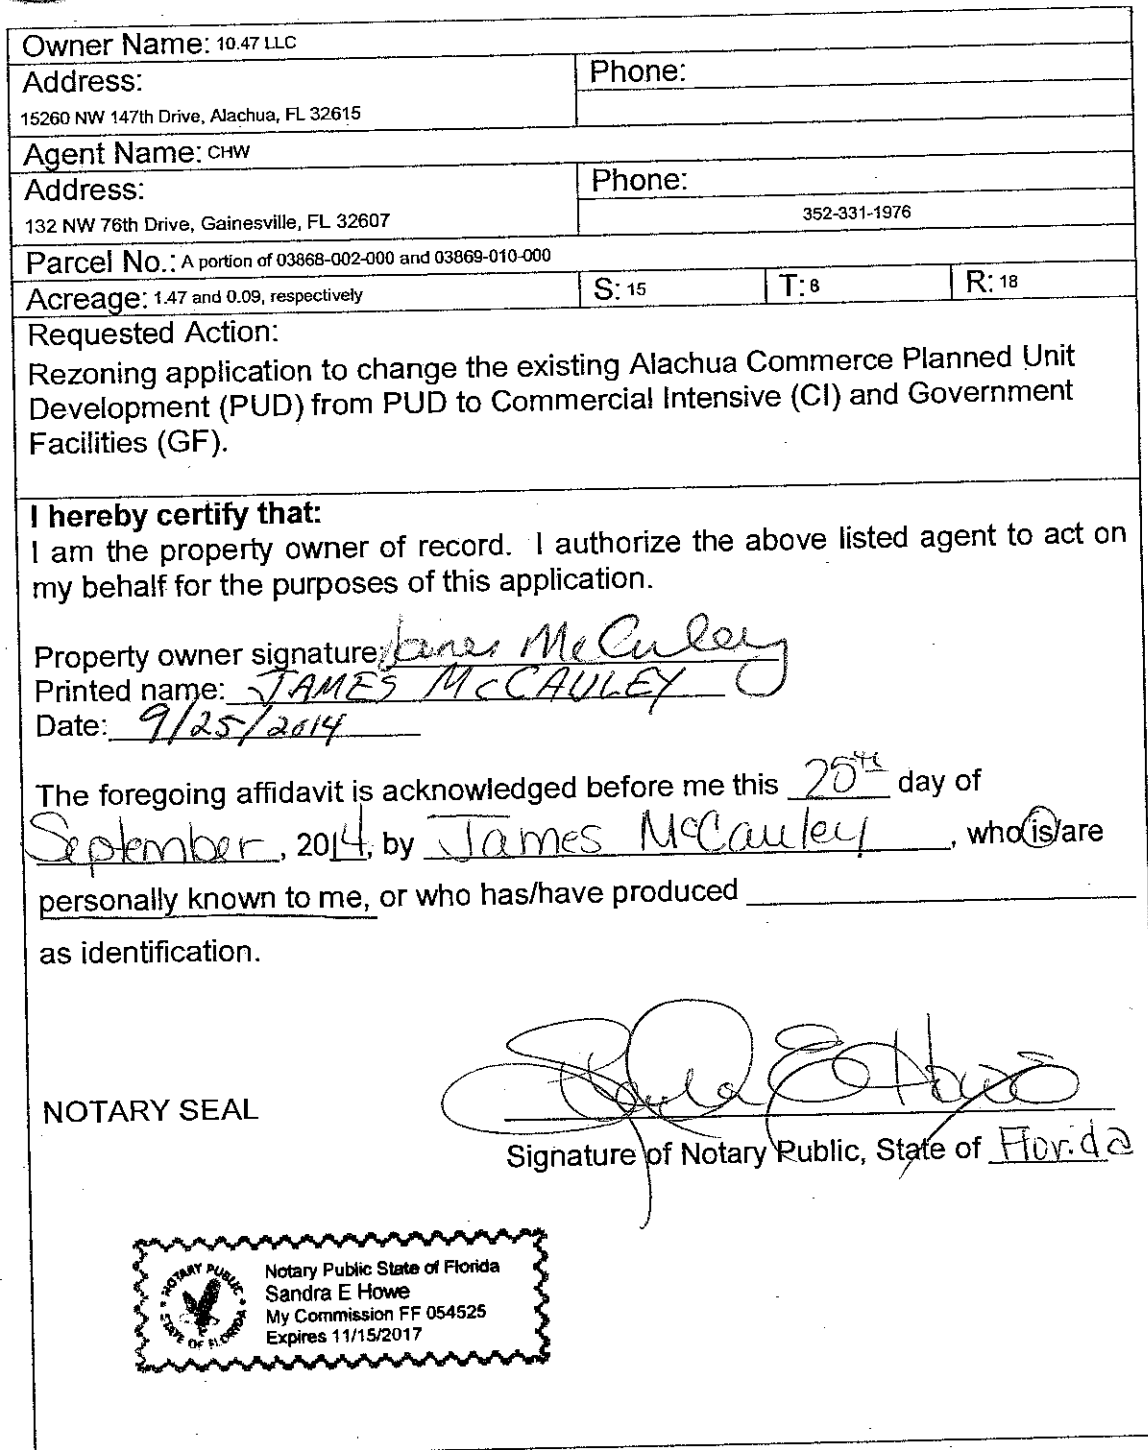 Owner Name: 10.47 LLC
Address:
15260 NW 147th Drive, Alachua, FL 32615
Phone:
Agent Name: CHW
Address:
132 NW 76th Drive, Gainesville, FL 32607
Phone:
352-331-1976
Parcel No.: A portion of 03868-002-000 and 03869-010-000
Acreage: 1.47 and 0.09, respectively
S: 15
T: 8
R: 18
Requested Action:
Rezoning application to change the existing Alachua Commerce Planned Unit
Development (PUD) from PUD to Commercial Intensive (CI) and Government
Facilities (GF).
I hereby certify that:
I am the property owner of record. I authorize the above listed agent to act on
my behalf for the purposes of this application.
Property owner signature: James McCauley
Printed name: JAMES McCAULEY
Date: 9/25/2014
The foregoing affidavit is acknowledged before me this 25th day of
September, 2014, by James McCauley, who is/are
personally known to me, or who has/have produced
as identification.
NOTARY SEAL
Sandra E Howe
Signature of Notary Public, State of Florida
NOTARY PUBLIC
STATE OF FLORIDA
Notary Public State of Florida
Sandra E Howe
My Commission FF 054525
Expires 11/15/2017